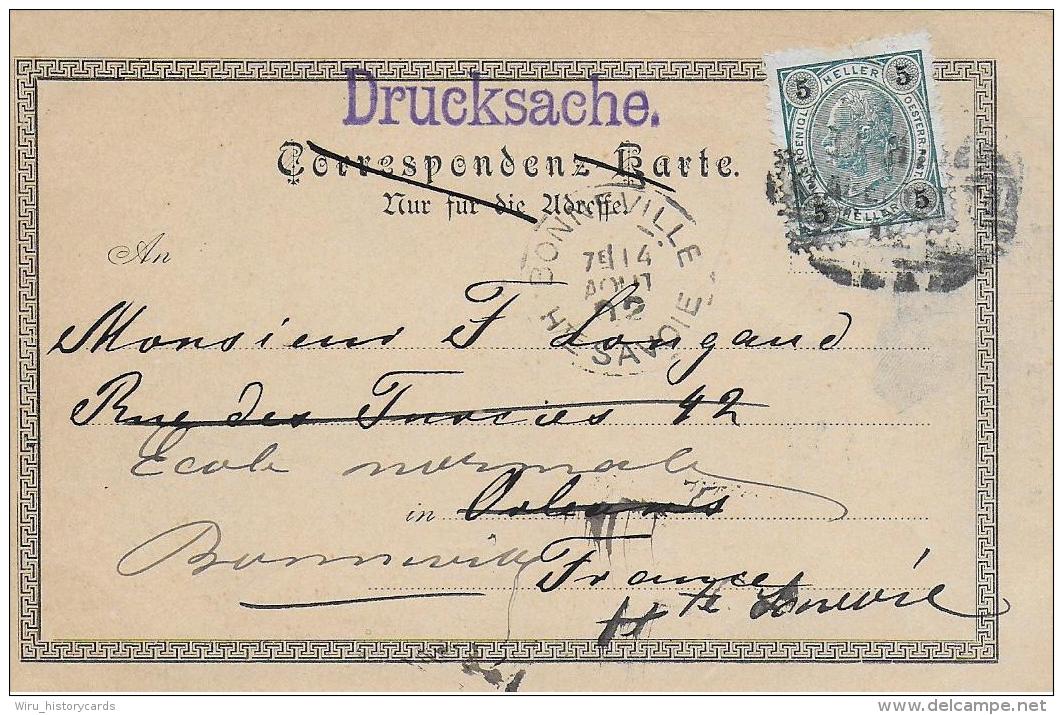 Drucksache.
Correspondenz-Karte.
Nur für die Adresse.
5 HELLER 5
5 HELLER 5
OESTERR. POST
BONNEVILLE
7E 14
AOUT
02
HTE SAVOIE
An
Monsieur F Longaud
Rue des Turcies 42
Ecole normale
in Orleans
Bonneville
France
Hte Savoie
Wiru_historycards
delcampe.net